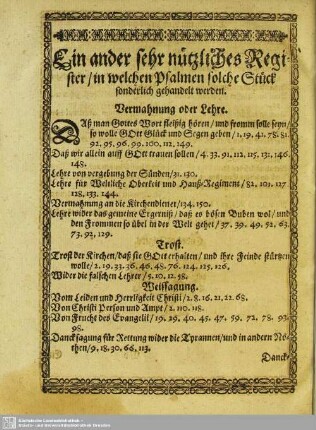 Ein ander sehr nützliches Regi-
ster / in welchen Psalmen solche Stück
sonderlich gehandelt werden.
Vermahnung oder Lehre.
DAß man Gottes Wort fleissig hören / und fromm solle seyn /
so wolle GOtt Glück und Segen geben / 1. 19. 42. 78. 81.
92. 95. 96. 99. 100. 112. 149.
Daß wir allein auff GOtt trauen sollen / 4. 33. 91. 112. 115. 131. 146.
148.
Lehre von vergebung der Sünden / 32. 130.
Lehre für Weltliche Oberkeit und Hauß-Regiment / 82. 101. 127
128. 133. 144.
Vermahnung an die Kirchendiener / 134. 150.
Lehre wider das gemeine Ergerniß / daß es bösen Buben wol / und
den Frommen so übel in der Welt gehet / 37. 39. 49. 52. 63.
73. 92. 129.
Trost.
Trost der Kirchen / daß sie GOtt erhalten / und ihre Feinde stürtzen
wolle / 2. 19. 33. 36. 46. 48. 76. 124. 125. 126.
Wider die falschen Lehrer / 5. 10. 12. 58.
Weissagung.
Vom Leiden und Herrligkeit Christi / 2. 8. 16. 21. 22. 68.
Von Christi Person und Ampt / 2. 110. 118.
Von Frucht des Evangelii / 19. 29. 40. 45. 47. 59. 72. 78. 93
98.
Dancksagung für Rettung wider die Tyrannen / und in andern Nö-
then / 9. 18. 30. 66. 113.
Danck-